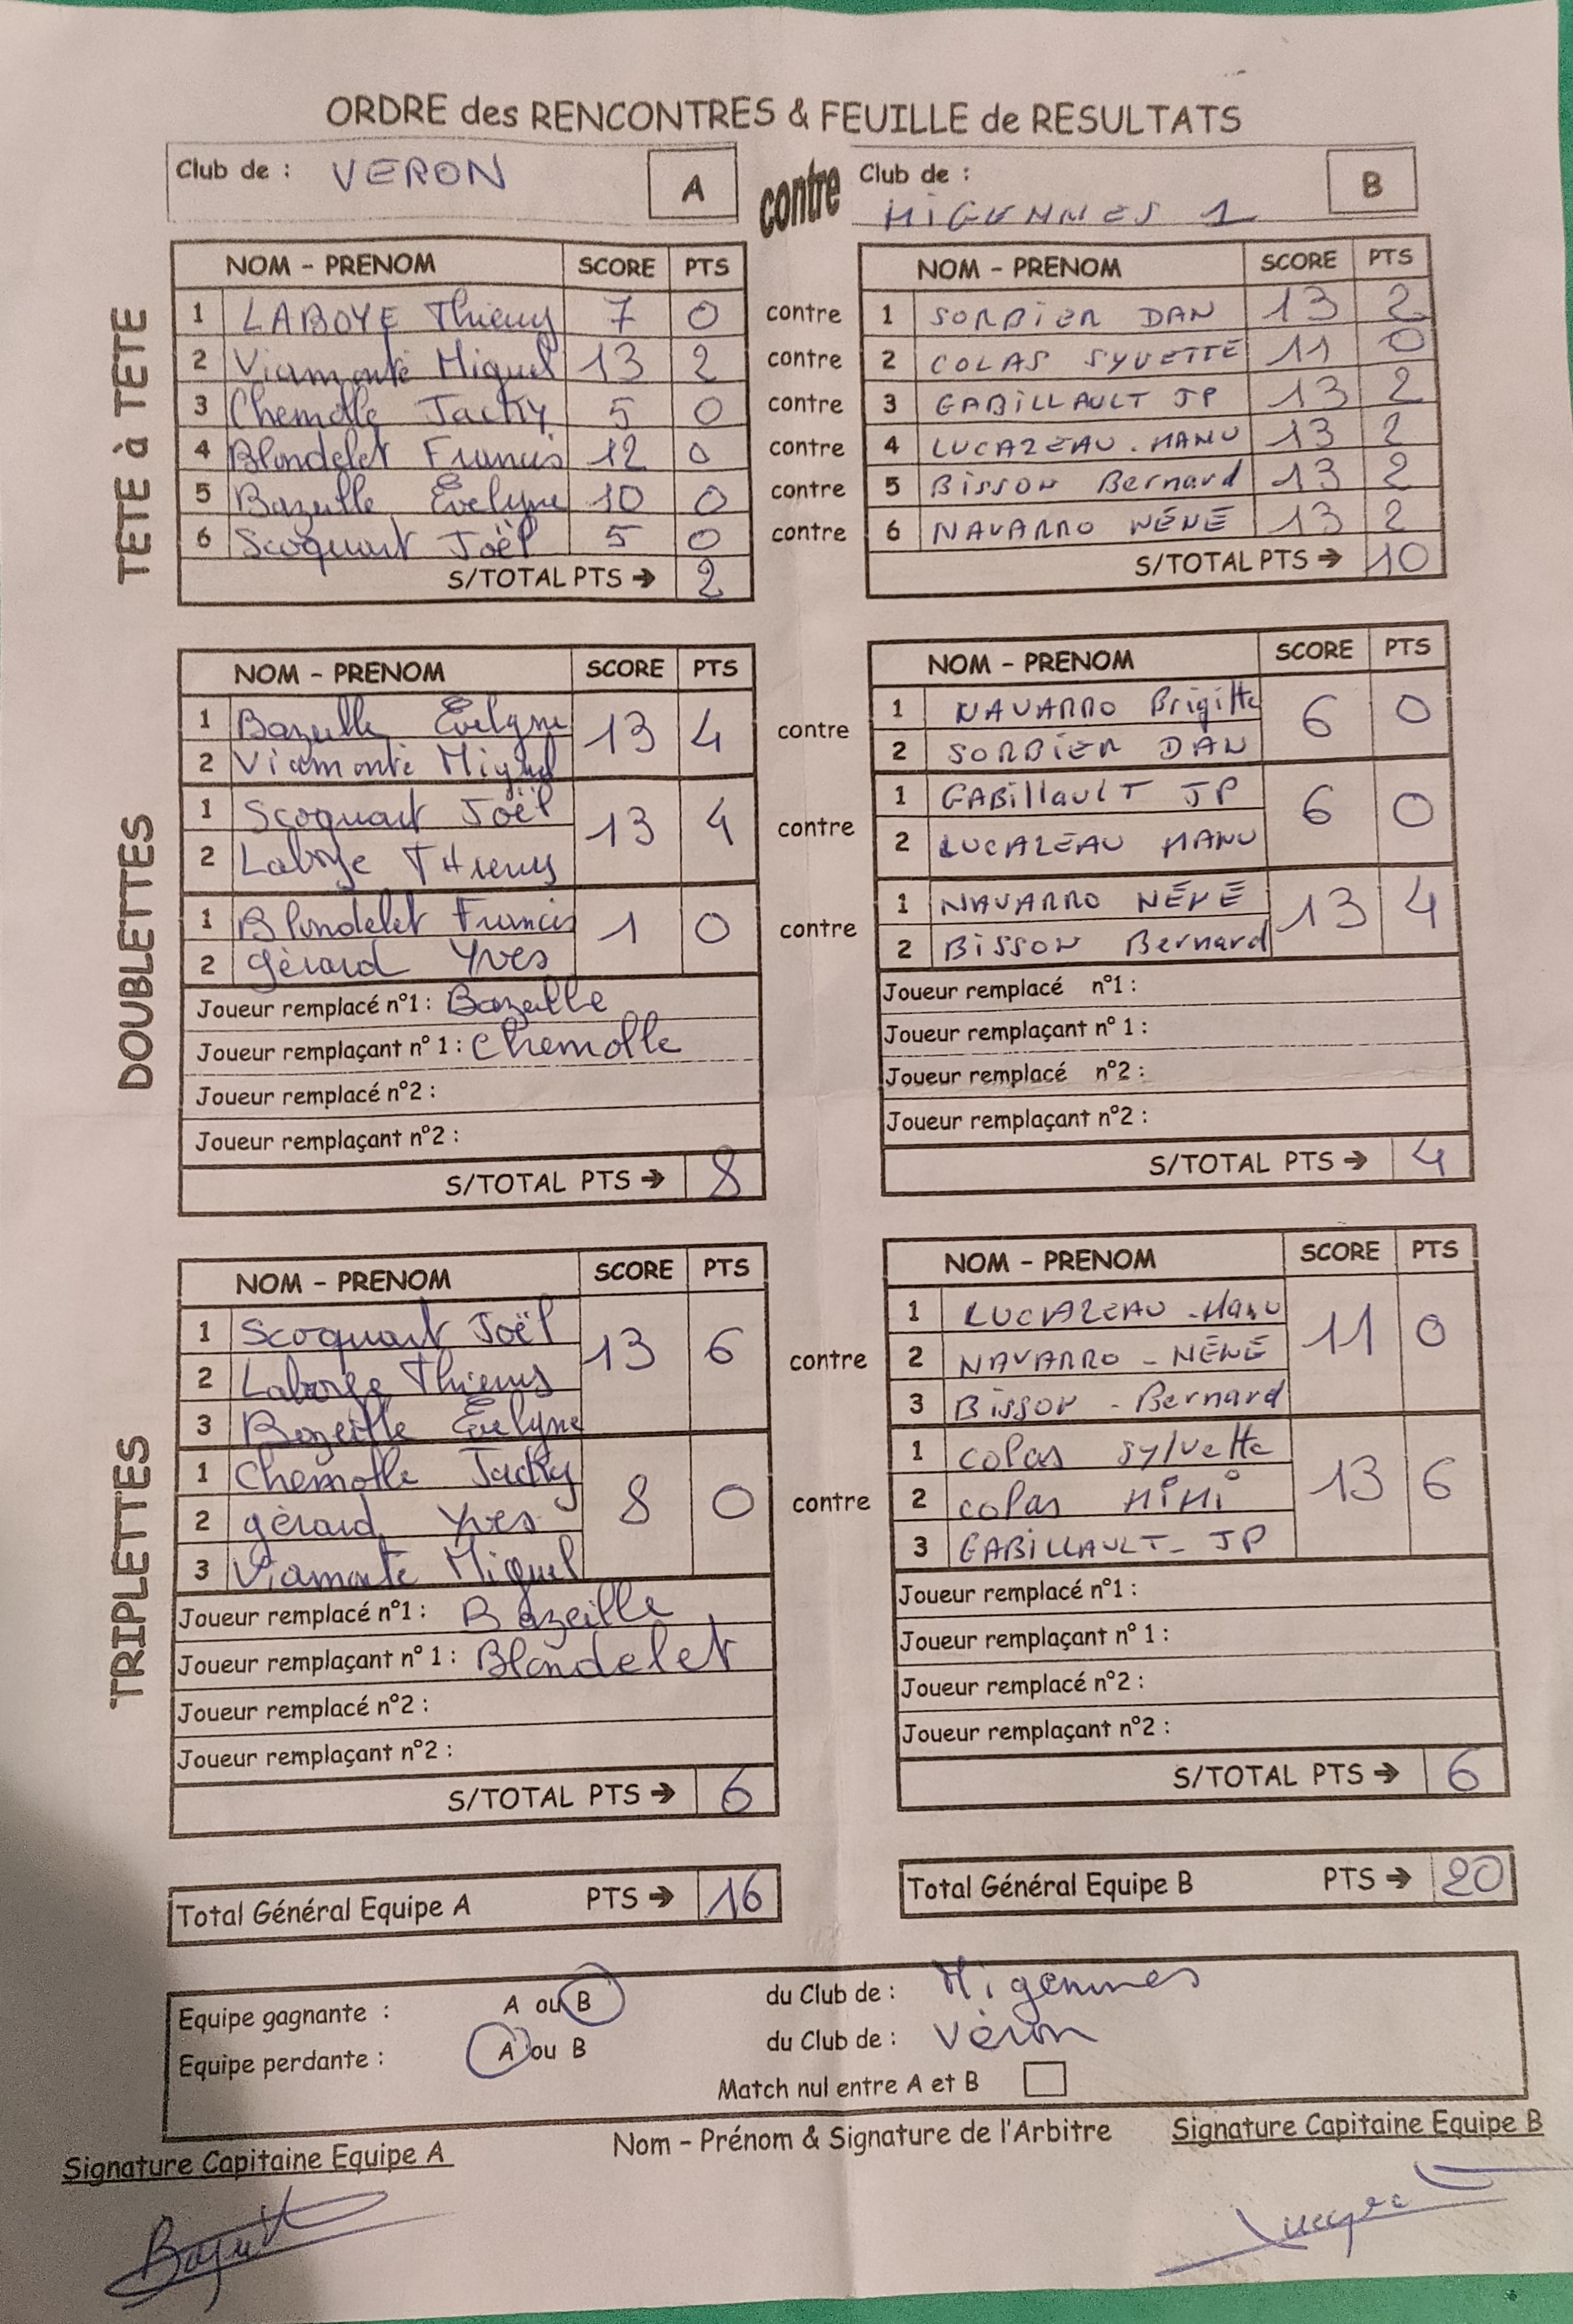 ORDRE des RENCONTRES & FEUILLE de RESULTATS
Club de : VERON A contre Club de : MIGENNES 1 B
TETE à TETE
NOM - PRENOM SCORE PTS NOM - PRENOM SCORE PTS
1 LABOYE Thierry 7 0 contre 1 SORBIER DAN 13 2
2 Viamonté Miguel 13 2 contre 2 COLAS SYVETTE 11 0
3 Chemolle Jacky 5 0 contre 3 GABILLAULT JP 13 2
4 Blondelet Francis 12 0 contre 4 LUCAZEAU - MANU 13 2
5 Bazeille Evelyne 10 0 contre 5 BISSON Bernard 13 2
6 Scoquart Joël 5 0 contre 6 NAVARRO NÉNÉ 13 2
S/TOTAL PTS → 2 S/TOTAL PTS → 10
DOUBLETTES
NOM - PRENOM SCORE PTS NOM - PRENOM SCORE PTS
1 Bazeille Evelyne 13 4 contre 1 NAVARRO Brigitte 6 0
2 Viamonté Miguel 2 SORBIER DAN
1 Scoquart Joël 13 4 contre 1 GABillaULT JP 6 0
2 Laboye THierry 2 LUCAZEAU MANU
1 Blondelet Francis 1 0 contre 1 NAVARRO NÉNÉ 13 4
2 gérard Yves 2 BISSON Bernard
Joueur remplacé n°1 : Bazeille Joueur remplacé n°1 :
Joueur remplaçant n° 1 : Chemolle Joueur remplaçant n° 1 :
Joueur remplacé n°2 : Joueur remplacé n°2 :
Joueur remplaçant n°2 : Joueur remplaçant n°2 :
S/TOTAL PTS → 8 S/TOTAL PTS → 4
TRIPLETTES
NOM - PRENOM SCORE PTS NOM - PRENOM SCORE PTS
1 Scoquart Joël 13 6 contre 1 LUCAZEAU - Manu 11 0
2 Laboye Thierry 2 NAVARRO - NÉNÉ
3 Bazeille Evelyne 3 BISSON - Bernard
1 Chemolle Jacky 8 0 contre 1 colas sylvette 13 6
2 gérard Yves 2 colas MiMi
3 Viamonté Miguel 3 GABILLAULT - JP
Joueur remplacé n°1 : Bazeille Joueur remplacé n°1 :
Joueur remplaçant n° 1 : Blondelet Joueur remplaçant n° 1 :
Joueur remplacé n°2 : Joueur remplacé n°2 :
Joueur remplaçant n°2 : Joueur remplaçant n°2 :
S/TOTAL PTS → 6 S/TOTAL PTS → 6
Total Général Equipe A PTS → 16 Total Général Equipe B PTS → 20
Equipe gagnante : A ou B du Club de : Migennes
Equipe perdante : A ou B du Club de : Véron
Match nul entre A et B
Signature Capitaine Equipe A Nom - Prénom & Signature de l'Arbitre Signature Capitaine Equipe B